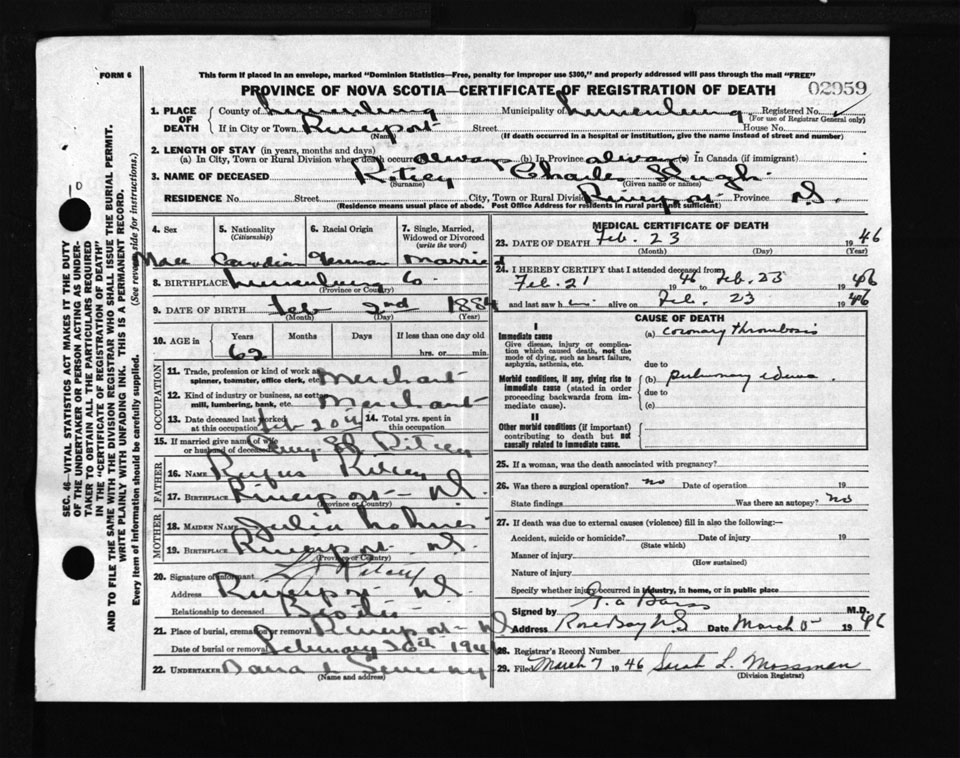 FORM 6
This form if placed in an envelope, marked "Dominion Statistics—Free, penalty for improper use $300," and properly addressed will pass through the mail "FREE"
PROVINCE OF NOVA SCOTIA—CERTIFICATE OF REGISTRATION OF DEATH 02959
1. PLACE OF DEATH County of Lunenburg Municipality of Lunenburg Registered No.
(For use of Registrar General only)
If in City or Town Riverport Street House No.
(Name) (If death occurred in a hospital or institution, give the name instead of street and number)
2. LENGTH OF STAY (in years, months and days)
(a) In City, Town or Rural Division where death occurred always (b) In Province always (c) In Canada (if immigrant)
3. NAME OF DECEASED Ritcey Charles Hugh
(Surname) (Given name or names)
RESIDENCE No. Street City, Town or Rural Division Riverport Province N.S.
(Residence means usual place of abode. Post Office Address for residents in rural parts not sufficient)
4. Sex 5. Nationality (Citizenship) 6. Racial Origin 7. Single, Married, Widowed or Divorced (write the word)
Male Canadian German Married
8. BIRTHPLACE Lunenburg Co
(Province or Country)
9. DATE OF BIRTH Feb 2nd 1884
(Month) (Day) (Year)
10. AGE in Years Months Days If less than one day old
62 hrs. or min.
OCCUPATION
11. Trade, profession or kind of work as spinner, teamster, office clerk, etc. Merchant
12. Kind of industry or business, as cotton mill, lumbering, bank, etc. Merchant
13. Date deceased last worked at this occupation Feb 20th 14. Total yrs. spent in this occupation
15. If married give name of wife or husband of deceased Ritcey
FATHER
16. NAME Rufus Ritcey
17. BIRTHPLACE Riverport N.S.
(Province or Country)
MOTHER
18. MAIDEN NAME Julia Lohnes
19. BIRTHPLACE Riverport N.S.
(Province or Country)
20. Signature of informant Ritcey
Address Riverport N.S.
Relationship to deceased Brother
21. Place of burial, cremation or removal Riverport N.S.
Date of burial or removal February 26th 1946
22. UNDERTAKER Sweeny
(Name and address)
MEDICAL CERTIFICATE OF DEATH
23. DATE OF DEATH Feb. 23 1946
(Month) (Day) (Year)
24. I HEREBY CERTIFY that I attended deceased from
Feb. 21 1946 to Feb. 23 1946
and last saw him alive on Feb. 23 1946
CAUSE OF DEATH
I
Immediate cause (a) coronary thrombosis
Give disease, injury or complication which caused death, not the mode of dying, such as heart failure, asphyxia, asthenia, etc.
due to
Morbid conditions, if any, giving rise to immediate cause (stated in order proceeding backwards from immediate cause). (b) pulmonary edema.
due to
(c)
II
Other morbid conditions (if important) contributing to death but not causally related to immediate cause.
25. If a woman, was the death associated with pregnancy?
26. Was there a surgical operation? no Date of operation 19
State findings Was there an autopsy? no
27. If death was due to external causes (violence) fill in also the following:—
Accident, suicide or homicide? Date of injury 19
(State which)
Manner of injury
(How sustained)
Nature of injury
Specify whether injury occurred in industry, in home, or in public place
Signed by G. A. Barss M.D.
Address Rose Bay N.S. Date March 5 1946
28. Registrar's Record Number
29. Filed March 7 1946 Sarah L. Mossman
(Division Registrar)
SEC. 46—VITAL STATISTICS ACT MAKES IT THE DUTY
OF THE UNDERTAKER OR PERSON ACTING AS UNDERTAKER TO OBTAIN ALL THE PARTICULARS REQUIRED
IN THE "CERTIFICATE OF REGISTRATION OF DEATH"
AND TO FILE THE SAME WITH THE DIVISION REGISTRAR WHO SHALL ISSUE THE BURIAL PERMIT.
WRITE PLAINLY WITH UNFADING INK. THIS IS A PERMANENT RECORD.
Every item of information should be carefully supplied. (See reverse side for instructions.)